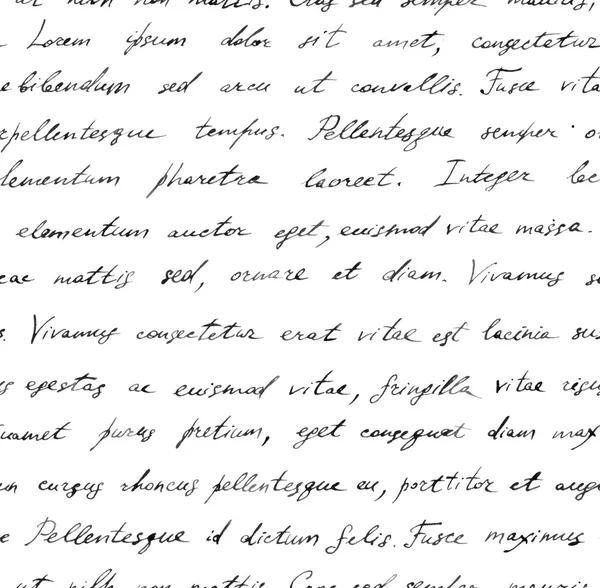 non mattis. Cras sed semper mauris,
Lorem ipsum dolor sit amet, consectetur
bibendum sed arcu ut convallis. Fusce vita
rpellentesque tempus. Pellentesque semper
lementum pharetra laoreet. Integer
elementum auctor eget, euismod vitae massa.
cac mattis sed, ornare et diam. Vivamus
s. Vivamus consectetur erat vitae est lacinia sus
egestas ac euismod vitae, fringilla vitae risus
purus pretium, eget consequat diam max
cursus rhoncus pellentesque eu, porttitor et augu
e Pellentesque id dictum felis. Fusce maximus
ut nibh non mattis. Cras sed semper mauris